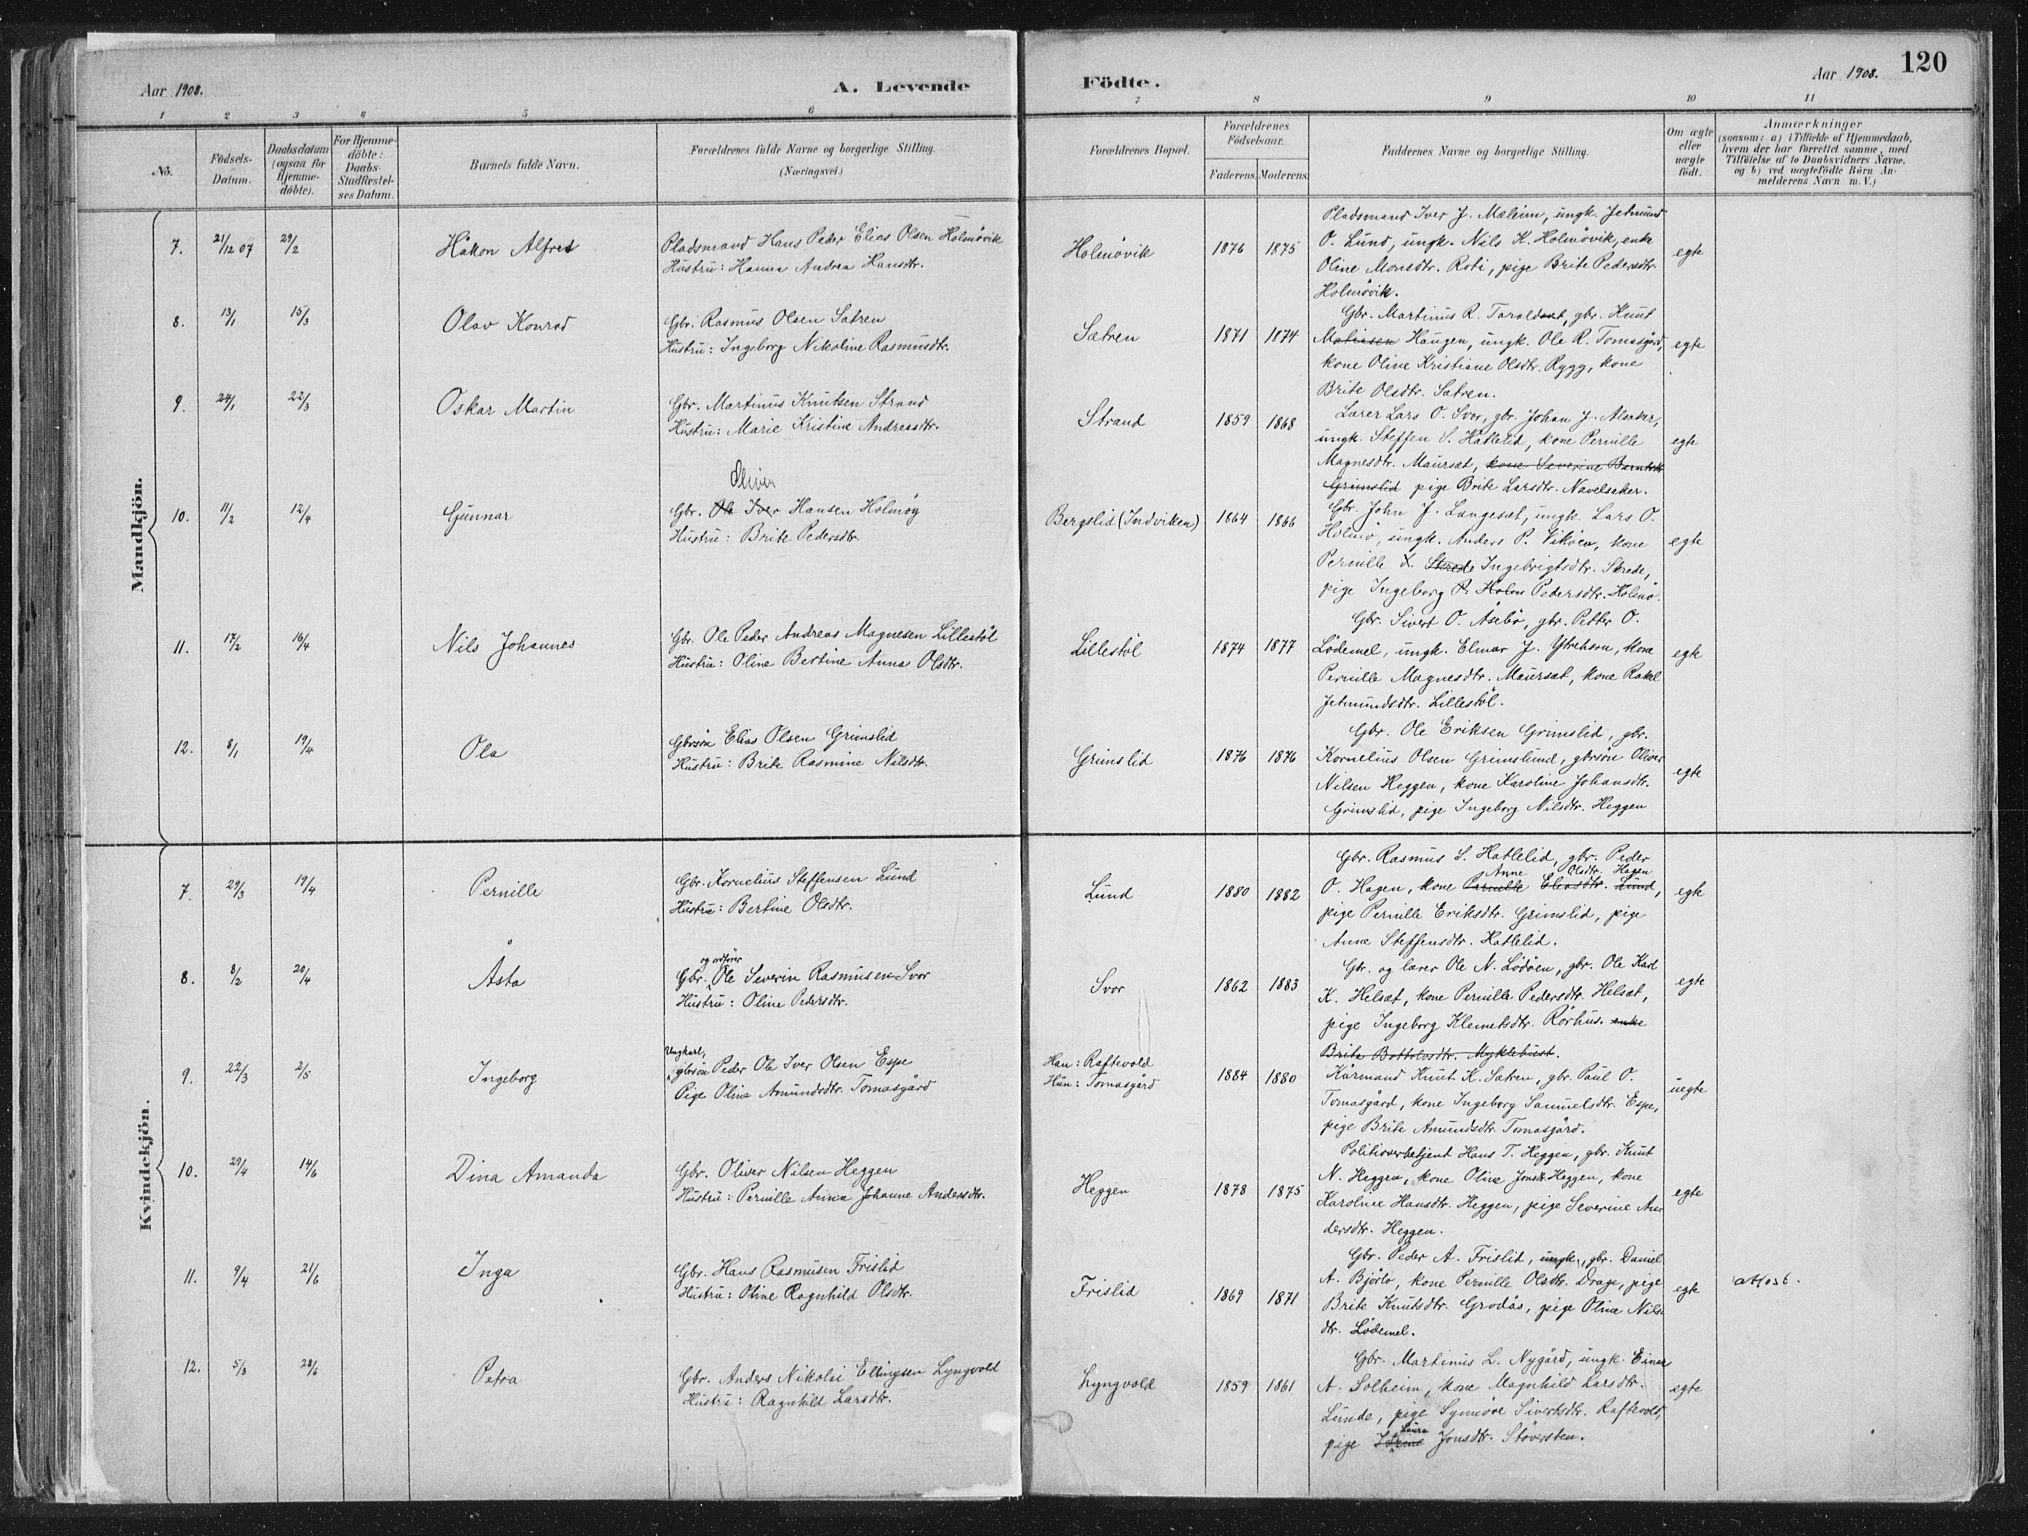 Aar 1908.
A. Levende
Födte.
Aar 1908.
120
1 2 3 4 5 6 7 8 9 10 11
No.
Födsels-Datum.
Daabsdatum (ogsaa for Hjemmedöbte).
For Hjemmedöbte: Daabs-Stadfæstelses Datum.
Barnets fulde Navn.
Forældrenes fulde Navne og borgerlige Stilling.
(Næringsvei.)
Forældrenes Bopæl.
Forældrenes Födselsaar.
Faderens. Moderens.
Faddernes Navne og borgerlige Stilling.
Om ægte eller uægte födt.
Anmærkninger
(saasom: a) i Tilfælde af Hjemmedaab, hvem der har forrettet samme, med Tilföielse af to Daabsvidners Navne. og b) ved uægtefödte Börn Anmelderens Navn m. V.)
Mandkjön.
7. 21/12 07 29/2 Håkon Alfred
Pladsmand Hans Peder Elias Olsen Holmøvik
Hustru: Hanna Andrea Hansdtr.
Holmøvik 1876 1875
Pladsmand Iver J. Mæleim, ungk. Jetmund
O. Lund, ungk. Nils K. Holmøvik, enke
Oline Monsdtr. Roti, pige Brite Pedersdtr.
Holmøvik.
egte
8. 13/1 15/3 Olav Konrad
Gbr. Rasmus Olsen Sætren
Hustru: Ingeborg Nikoline Rasmusdtr.
Sætren 1871 1874
Gbr. Martinus R. Taraldset, gbr. Knut
Matiasen Haugen, ungk. Ole R. Tomasgård,
kone Oline Kristiane Olsdtr. Rygg, kone
Brite Olsdtr. Sætren.
egte
9. 24/1 22/3 Oskar Martin
Gbr. Martinus Knutsen Strand
Hustru: Marie Kristine Andreasdtr.
Strand 1859 1868
Lærer Lars O. Svor, gbr. Johan J. Alsaker,
ungk. Steffen S. Hatlelid, kone Pernille
Magnesdtr. Maurset, kone Severine Berntsdtr.
Grimslid pige Brite Larsdtr. Navelsaker.
egte
10. 11/2 12/4 Gunnar
Oliver
Gbr. Ole Iver Hansen Holmøy
Hustru: Brite Pedersdtr.
Bergslid (Indviken) 1864 1866
Gbr. John J. Langeset, ungk. Lars O.
Holmø, ungk. Anders P. Vikøen, kone
Pernille Skrede Ingebrigtsdtr. Skrede,
pige Ingeborg P. Holm Pedersdtr. Holmø.
egte
11. 17/2 16/4 Nils Johannes
Gbr. Ole Peder Andreas Magnesen Lillestøl
Hustru: Oline Bertine Anna Olsdtr.
Lillestøl 1874 1877
Gbr. Sivert O. Åsebø, gbr. Petter O.
Lødemel, ungk. Elmar J. Ytrehorn, kone
Pernille Magnesdtr. Maurset, kone Rakel
Jetmundsdtr. Lillestøl.
egte
12. 8/1 19/4 Ola
Gbrsøn Elias Olsen Grimslid
Hustru: Brite Rasmine Nilsdtr.
Grimslid 1876 1876
Gbr. Ole Eriksen Grimslid, gbr.
Kornelius Olsen Grimslund, gbrsøn Oliver
Nilsen Heggen, kone Karoline Johansdtr.
Grimslid, pige Ingeborg Nilsdtr. Heggen
egte
Kvindekjön.
7. 29/3 19/4 Pernille
Gbr. Kornelius Steffensen Lund
Hustru: Bertine Olsdtr.
Lund 1880 1882
Gbr. Rasmus S. Hatlelid, gbr. Peder
Anne Olsdtr. Hagen
O. Hagen, kone Pernille Eliasdtr. Lund,
pige Pernille Eriksdtr. Grimslid, pige
Anne Steffensdtr. Hatlelid.
egte
8. 8/2 20/4 Åsta
og ordfører
Gbr. Ole Severin Rasmusen Svor
Hustru: Oline Pedersdtr.
Svor 1862 1883
Gbr. og lærer Ole N. Lødøen, gbr. Ole Karl
K. Helset, kone Pernille Pedersdtr. Helset,
pige Ingeborg Klemetsdtr. Rørhus. enke
Brite Bottolvsdtr. Myklebust.
egte
9. 22/3 2/5 Ingeborg
Ungkarl,
gbrsøn Peder Ole Iver Olsen Espe
Pige Oline Amundsdtr. Tomasgård
Han: Raftevold
Hun: Tomasgård
1884 1880
Kårmand Knut K. Sætren, gbr. Paul O.
Tomasgård, kone Ingeborg Samuelsdtr. Espe,
pige Brite Amundsdtr. Tomasgård.
uegte
10. 29/4 14/6 Dina Amanda
Gbr. Oliver Nilsen Heggen
Hustru: Pernille Anna Johanne Andersdtr.
Heggen 1878 1875
Politioverbetjent Hans T. Heggen, gbr. Knut
N. Heggen, kone Oline Jonsdtr. Heggen, kone
Karoline Hansdtr. Heggen, pige Severine An-
dersdtr. Heggen.
egte
11. 9/4 21/6 Inga
Gbr. Hans Rasmusen Frislid
Hustru: Oline Ragnhild Olsdtr.
Frislid 1869 1871
Gbr. Peder A. Frislid, ungk., gbr. Daniel
A. Bjørlo, kone Pernille Olsdtr. Drage, pige
Brite Knutsdtr. Grodås, pige Oline Nils-
dtr. Lødemel.
egte
attest.
12. 5/3 28/6 Petra
Gbr. Anders Nikolai Ellingsen Lyngvold
Hustru: Ragnhild Larsdtr.
Lyngvold 1859 1861
Gbr. Martinus L. Nygård, ungk. Einar
A. Solheim, kone Magnhild Larsdtr.
Lunde, pige Synnøve Sivertsdtr. Raftevold,
Laura
pige Jonsdtr. Støversten.
egte